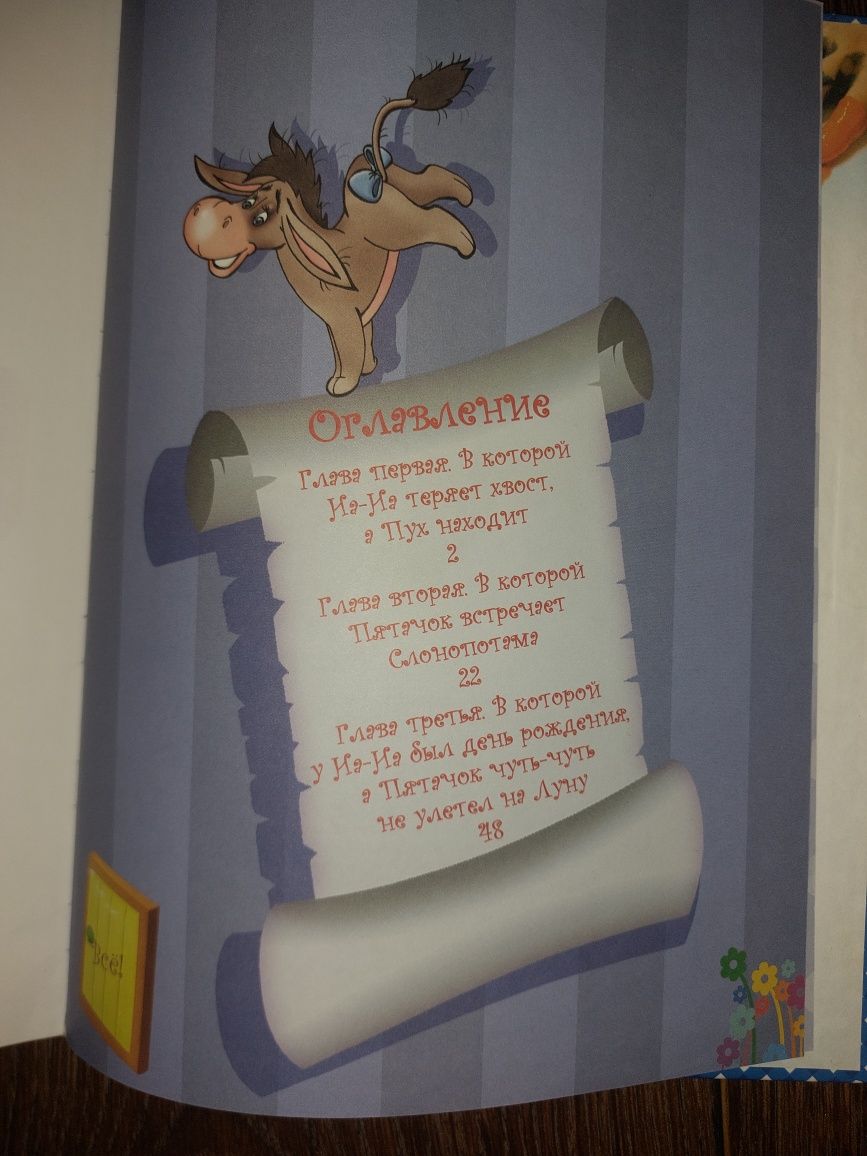 Оглавление
Глава первая. В которой
Иа-Иа теряет хвост,
а Пух находит
2
Глава вторая. В которой
Пятачок встречает
Слонопотама
22
Глава третья. В которой
у Иа-Иа был день рождения,
а Пятачок чуть-чуть
не улетел на Луну
48
Всё!